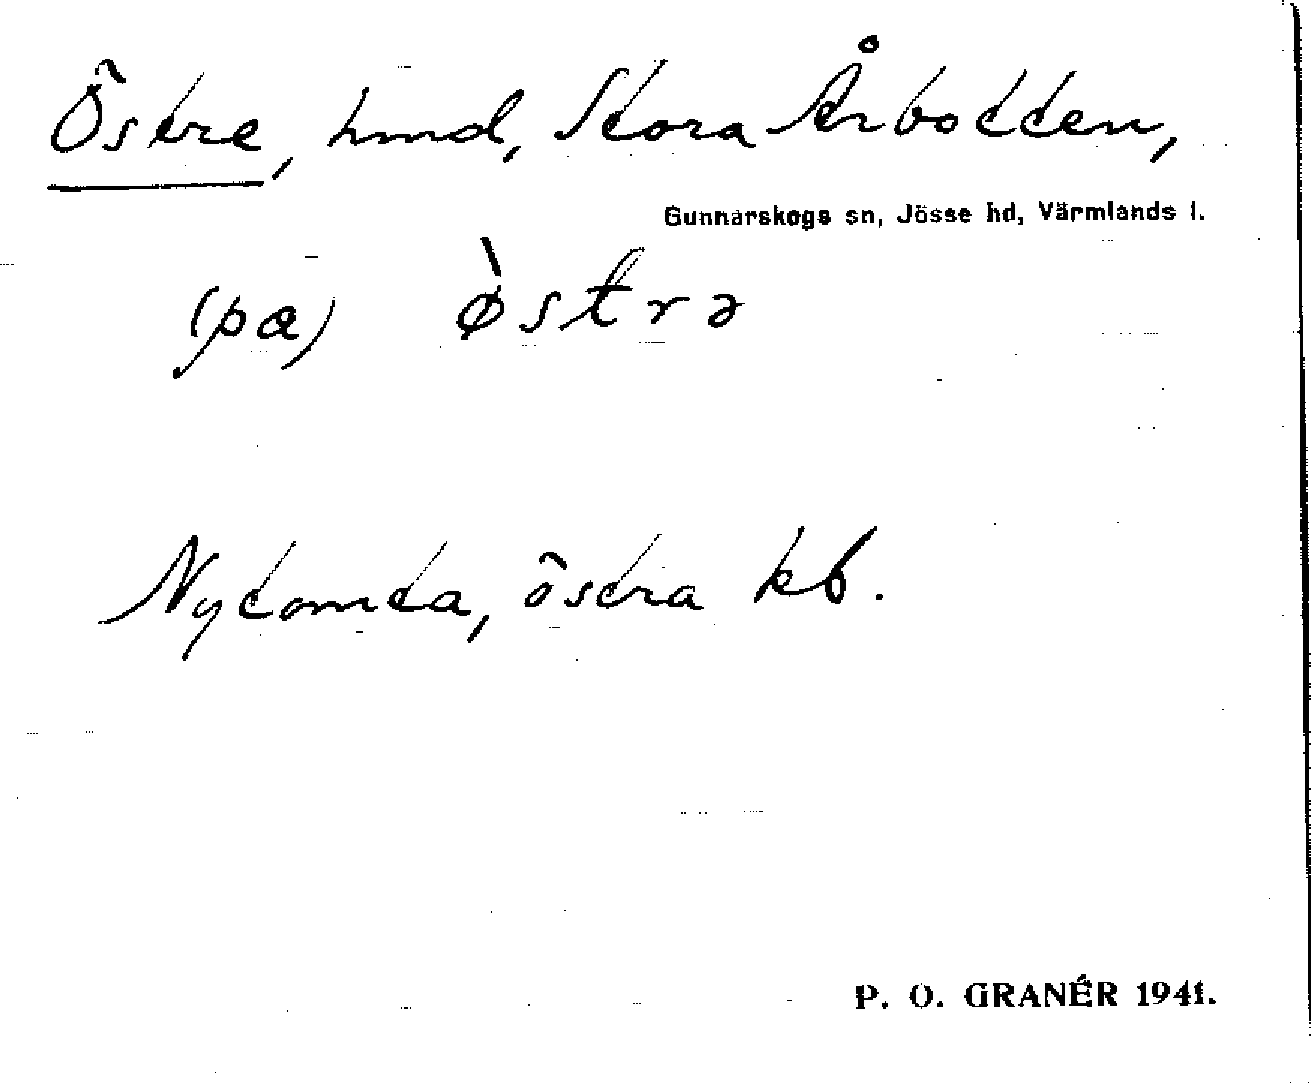 Östre, hmd, Stora Årbotten,
Gunnarskogs sn, Jösse hd, Värmlands l.
(pa) østrə
Nytomta, östra kb.
P. O. GRANÉR 1941.